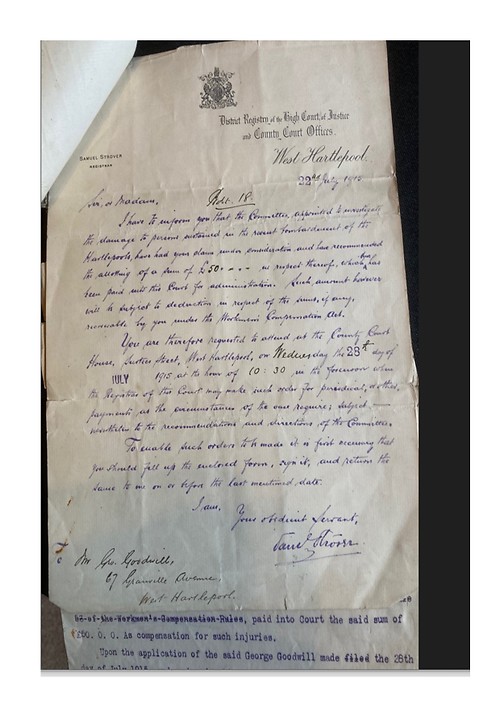 District Registry of the High Court of Justice
and County Court Offices.
West Hartlepool.
SAMUEL STROVER
REGISTRAR
22nd July 1915
Sir, or Madam,
I have to inform you that the Committee, appointed to investigate
the damage to persons sustained in the recent bombardment of the
Hartlepools, have had your claim under consideration and has recommended
the allotting of a sum of £50 - - - - in respect thereof, which has
been paid into this Court for administration. Such amount however
will be subject to deduction in respect of the sums, if any,
receivable by you under the Workmen's Compensation Act.
You are therefore requested to attend at the County Court
House, Street, West Hartlepool, on Wednesday the 28th day of
JULY 1915 at the hour of 10:30 in the forenoon when
the Registrar of this Court may make such order for periodical, or other,
payments as the circumstances of the case require, subject
to the recommendations and directions of the Committee.
To enable such orders to be made it is first necessary that
you should fill up the enclosed form, sign it, and return the
same to me on or before the last mentioned date.
I am,
Your obedient Servant,
Mr Geo. Goodwill,
67 Granville Avenue,
West Hartlepool.
of the Workmen's Compensation Rules, paid into Court the said sum of
0. 0. is compensation for such injuries.
Upon the application of the said George Goodwill made filed the 28th
day of July 1915